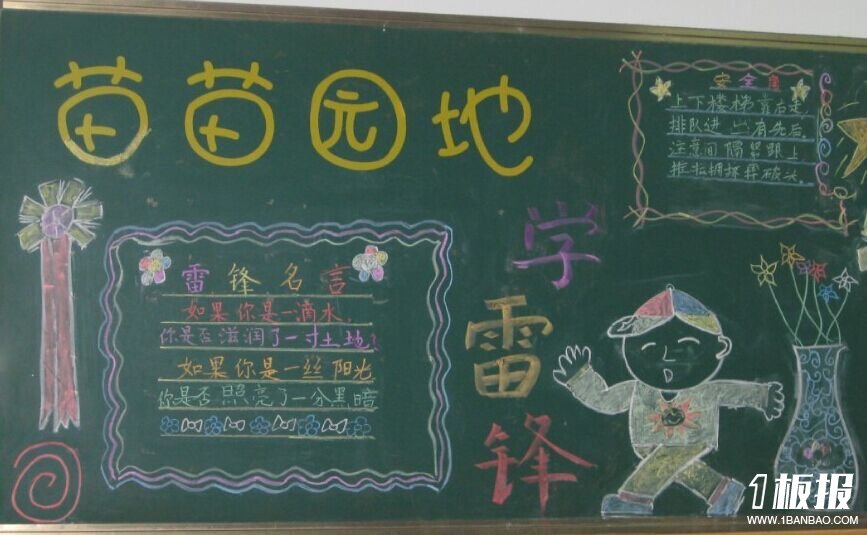 苗苗园地
雷锋名言
如果你是一滴水，
你是否滋润了一寸土地？
如果你是一丝阳光
你是否照亮了一分黑暗
学雷锋
上下楼梯靠右走
排队进出有先后
注意间隔紧跟上
推拉拥挤摔破头
1板报
WWW.1BANBAO.COM